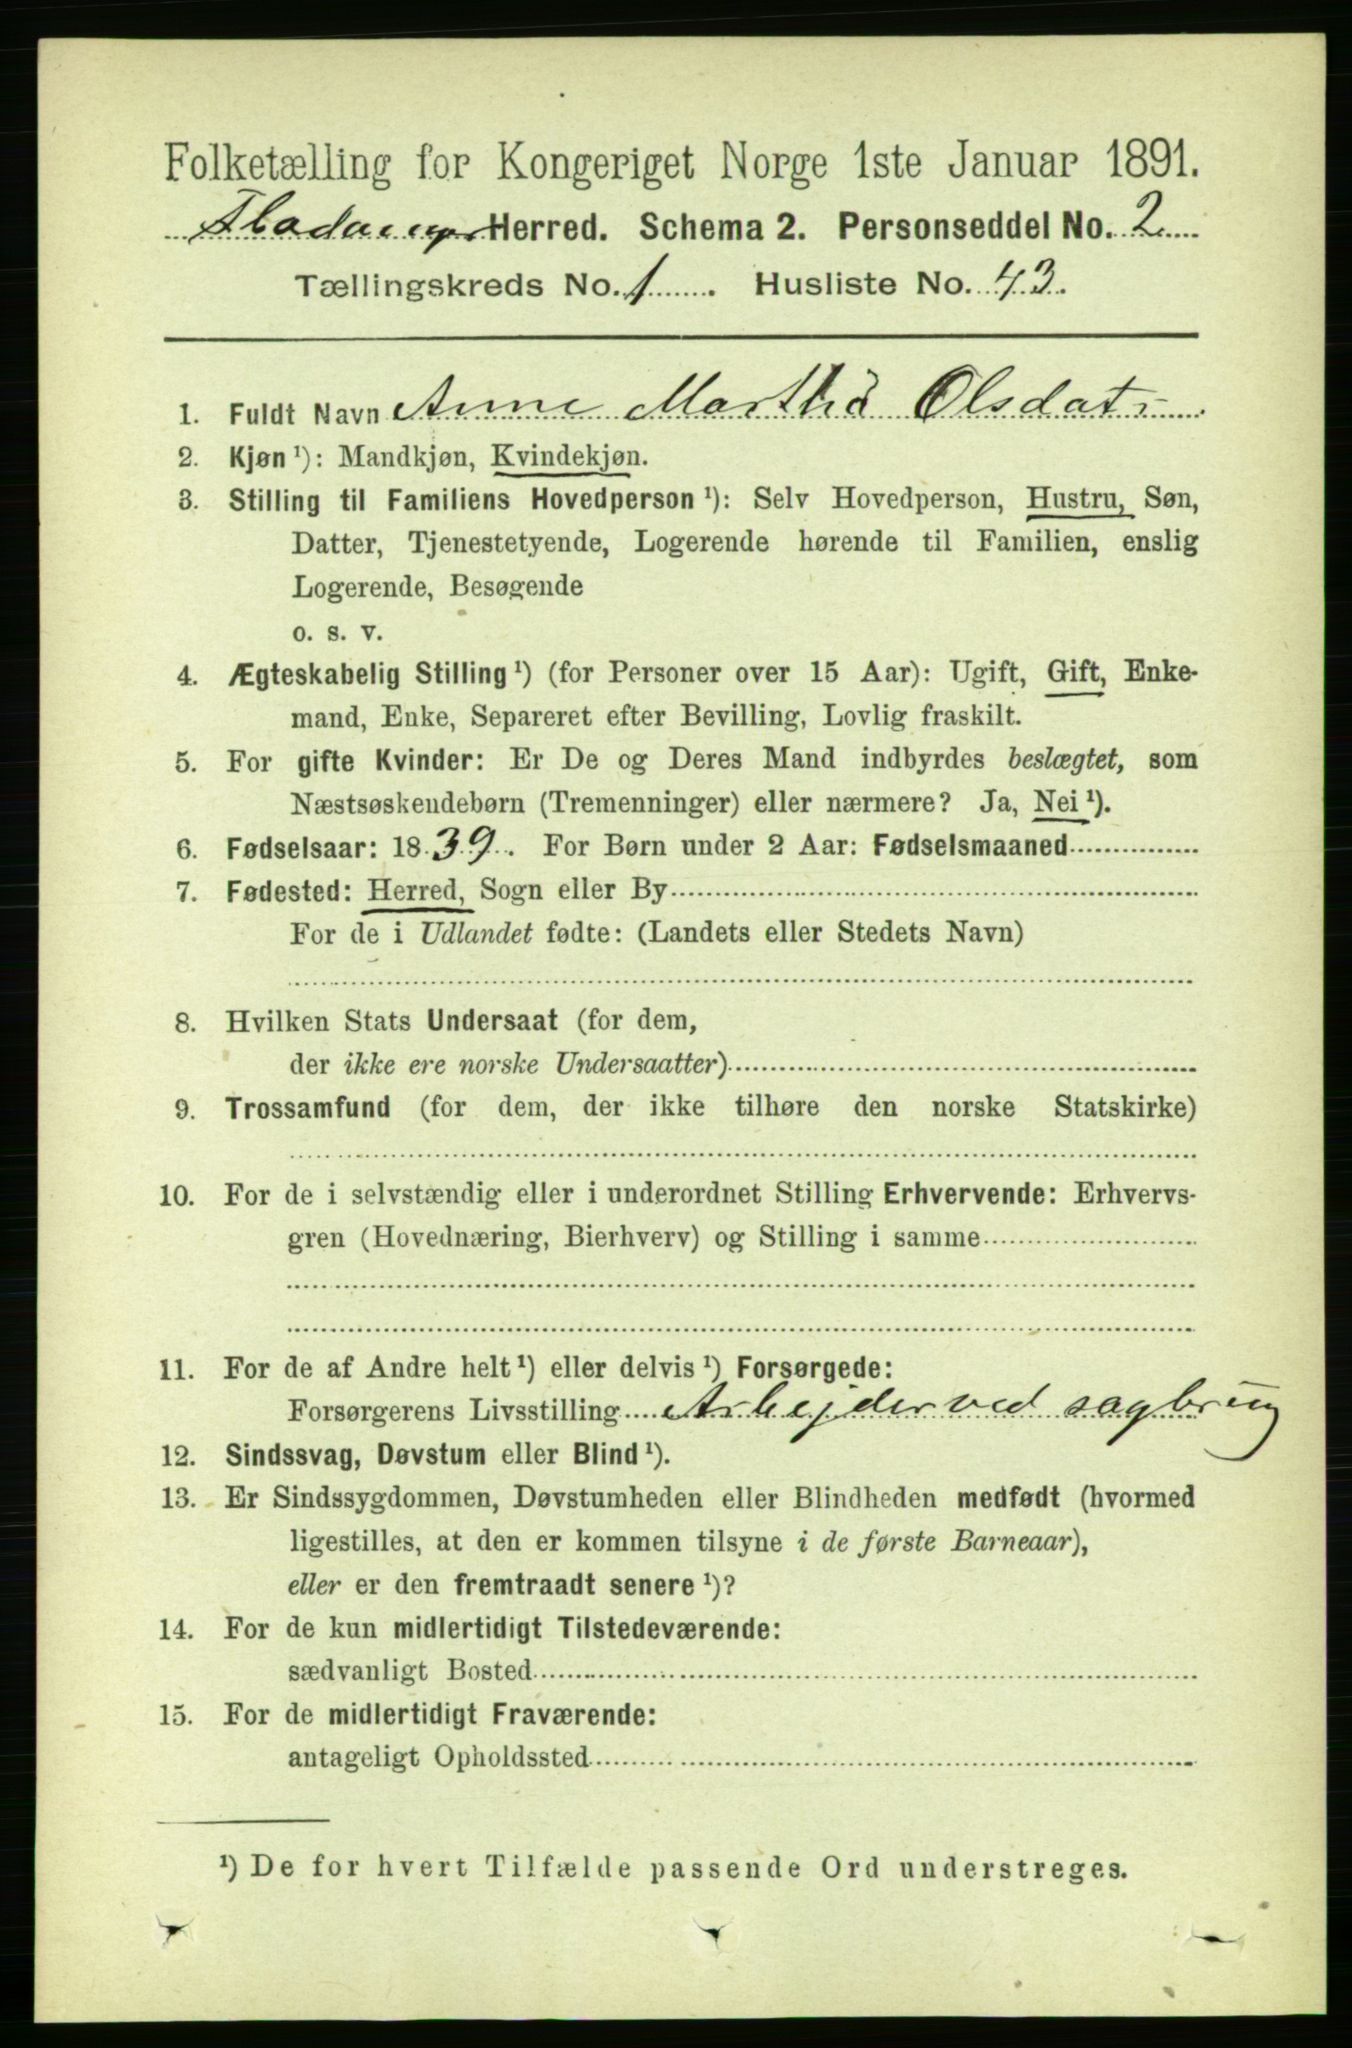 Folketælling for Kongeriget Norge 1ste Januar 1891.
Herred. Schema 2. Personseddel No. 2
Tællingskreds No. 1. Husliste No. 43.
1. Fuldt Navn Anne Marthea Olsdatr
2. Kjøn ¹): Mandkjøn, Kvindekjøn.
3. Stilling til Familiens Hovedperson ¹): Selv Hovedperson, Hustru, Søn,
Datter, Tjenestetyende, Logerende hørende til Familien, enslig
Logerende, Besøgende
o. s. v.
4. Ægteskabelig Stilling ¹) (for Personer over 15 Aar): Ugift, Gift, Enke-
mand, Enke, Separeret efter Bevilling, Lovlig fraskilt.
5. For gifte Kvinder: Er De og Deres Mand indbyrdes beslægtet, som
Næstsøskendebørn (Tremenninger) eller nærmere? Ja, Nei ¹).
6. Fødselsaar: 1839. For Børn under 2 Aar: Fødselsmaaned
7. Fødested: Herred, Sogn eller By
For de i Udlandet fødte: (Landets eller Stedets Navn)
8. Hvilken Stats Undersaat (for dem,
der ikke ere norske Undersaatter)
9. Trossamfund (for dem, der ikke tilhøre den norske Statskirke)
10. For de i selvstændig eller i underordnet Stilling Erhvervende: Erhvervs-
gren (Hovednæring, Bierhverv) og Stilling i samme
11. For de af Andre helt ¹) eller delvis ¹) Forsørgede:
Forsørgerens Livsstilling Arbejder ved sagbrug
12. Sindssvag, Døvstum eller Blind ¹).
13. Er Sindssygdommen, Døvstumheden eller Blindheden medfødt (hvormed
ligestilles, at den er kommen tilsyne i de første Barneaar),
eller er den fremtraadt senere ¹)?
14. For de kun midlertidigt Tilstedeværende:
sædvanligt Bosted
15. For de midlertidigt Fraværende:
antageligt Opholdssted
¹) De for hvert Tilfælde passende Ord understreges.